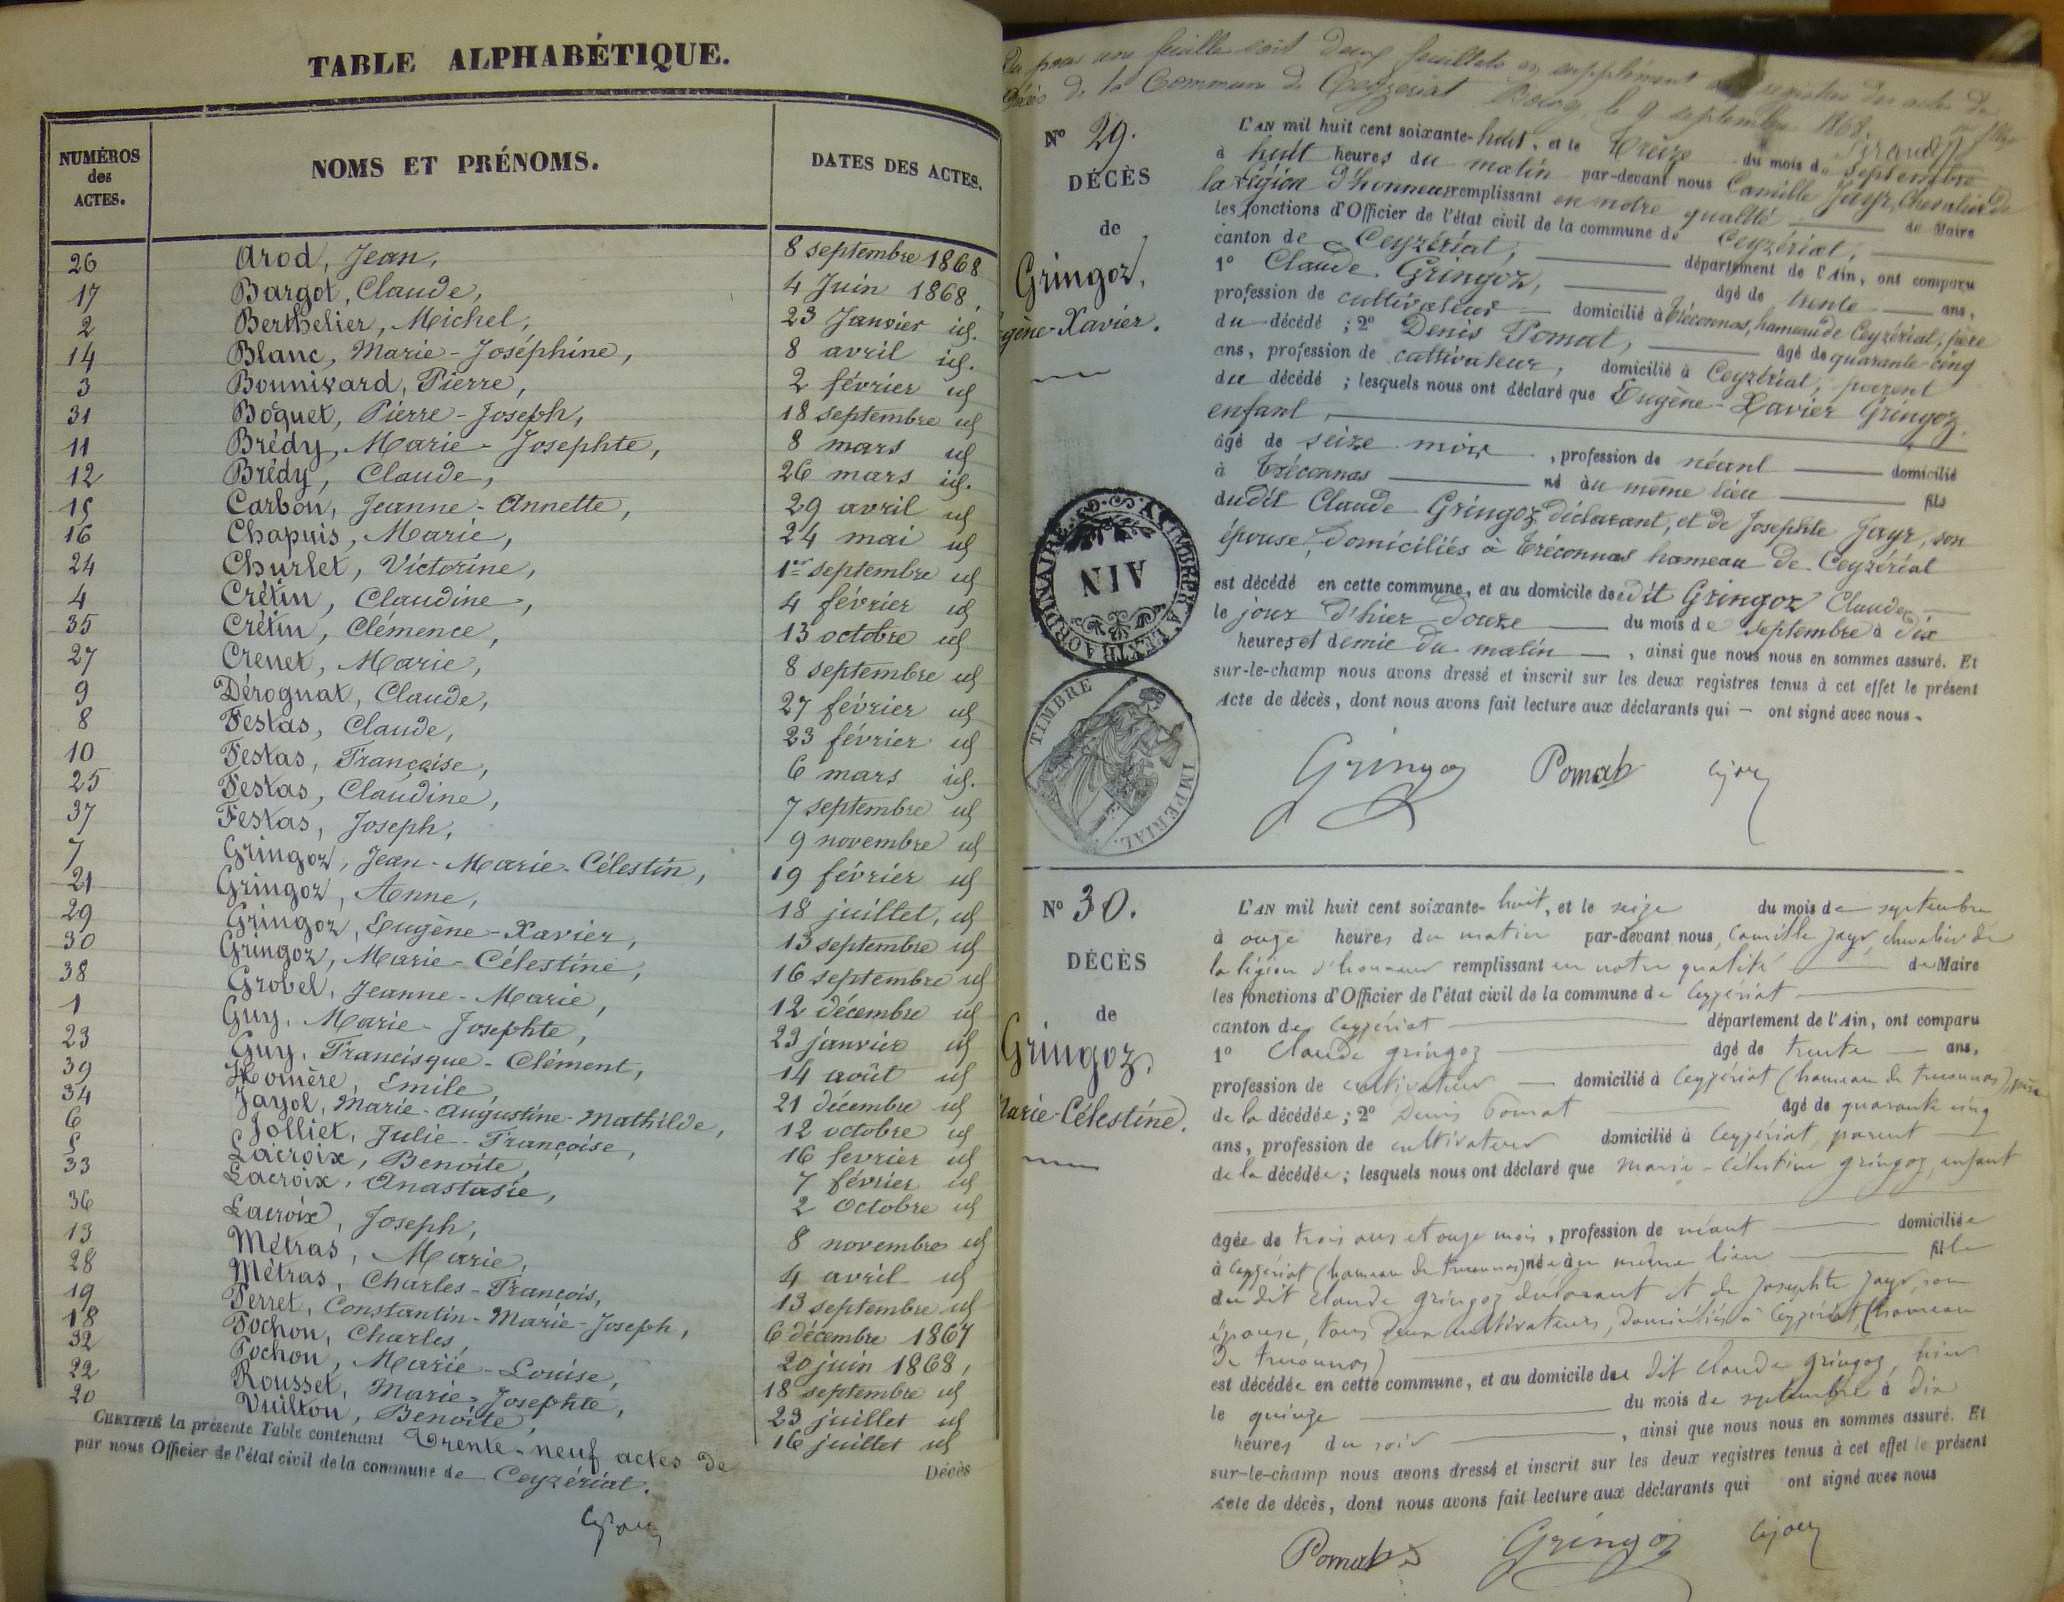 TABLE ALPHABÉTIQUE.
NUMÉROS des ACTES.
NOMS ET PRÉNOMS.
DATES DES ACTES.
26 Arod, Jean, 8 septembre 1868
17 Bargot, Claude, 4 Juin 1868,
2 Berthelier, Michel, 23 Janvier id.
14 Blanc, Marie-Joséphine, 8 avril id.
3 Bonnivard, Pierre, 2 février id
31 Boquet, Pierre-Joseph, 18 septembre id
11 Brédy, Marie-Josephte, 8 mars id
12 Brédy, Claude, 26 mars id.
15 Carbon, Jeanne-Annette, 29 avril id
16 Chapuis, Marie, 24 mai id
24 Churlet, Victorine, 1er septembre id
4 Crétin, Claudine, 4 février id
35 Crétin, Clémence, 13 octobre id
27 Crenet, Marie, 8 septembre id
9 Dérognat, Claude, 27 février id
8 Festas, Claude, 23 février id
10 Festas, Françoise, 6 mars id.
25 Festas, Claudine, 7 septembre id
37 Festas, Joseph, 9 novembre id
7 Gringoz, Jean-Marie-Célestin, 19 février id
21 Gringoz, Anne, 18 juillet, id
29 Gringoz, Eugène-Xavier, 13 septembre id
30 Gringoz, Marie-Célestine, 16 septembre id
38 Grobel, Jeanne-Marie, 12 décembre id
1 Guy, Marie-Josephte, 23 janvier id
23 Guy, Francisque-Clément, 14 août id
39 Honière, Emile, 21 décembre id
34 Jayol, Marie-Augustine-Mathilde, 12 octobre id
6 Jolliet, Julie-Françoise, 16 fevrier id
5 Lacroix, Benoite, 7 février id
33 Lacroix, Anastasie, 2 Octobre id
36 Lacroix, Joseph, 8 novembre id
13 Métras, Marie, 4 avril id
28 Métras, Charles-François, 13 septembre id
19 Perret, Constantin-Marie-Joseph, 6 décembre 1867
18 Pochon, Charles, 20 juin 1868,
32 Pochon, Marie-Louise, 18 septembre id
22 Rousset, Marie-Josephte, 23 juillet id
20 Vuilton, Benoite, 16 juillet id
CERTIFIÉ la présente Table contenant Trente-neuf actes de Décès
par nous Officier de l'état civil de la commune de Ceyzériat.
Cjayr
Vu pour une feuille soit deux feuillets en supplément au registre des actes de
Décès de la Commune de Ceyzériat Bourg, le 9 septembre 1868.
N° 29.
DÉCÈS
de
Gringoz,
gène-Xavier.
L'AN mil huit cent soixante-huit, et le treize du mois de septembre
à huit heures du matin par-devant nous Camille Jayr, Chevalier de
la Légion d'honneur remplissant en notre qualité de Maire
les fonctions d'Officier de l'état civil de la commune de Ceyzériat,
canton de Ceyzériat, département de l'Ain, ont comparu
1° Claude Gringoz, âgé de trente ans,
profession de cultivateur domicilié à Tréconnas, hameau de Ceyzériat, père
du décédé ; 2° Denis Pomat, âgé de quarante-cinq
ans, profession de cultivateur, domicilié à Ceyzériat, parent
du décédé ; lesquels nous ont déclaré que Eugène-Xavier Gringoz,
enfant,
âgé de seize mois, profession de néant domicilié
à Tréconnas né au même lieu fils
dudit Claude Gringoz, déclarant, et de Josephte Jayr, son
épouse, domiciliés à Tréconnas hameau de Ceyzériat
est décédé en cette commune, et au domicile dudit Gringoz Claude,
le jour d'hier douze du mois de septembre à dix
heures et demie du matin, ainsi que nous nous en sommes assuré. Et
sur-le-champ nous avons dressé et inscrit sur les deux registres tenus à cet effet le présent
Acte de décès, dont nous avons fait lecture aux déclarants qui – ont signé avec nous.
Gringoz Pomat Cjayr
TIMBRE A L'EXTRAORDINAIRE
AIN
TIMBRE IMPERIAL
N° 30.
DÉCÈS
de
Gringoz,
Marie-Célestine.
L'AN mil huit cent soixante-huit, et le seize du mois de septembre
à onze heures du matin par-devant nous, Camille Jayr, chevalier de
la légion d'honneur remplissant en notre qualité de Maire
les fonctions d'Officier de l'état civil de la commune de Ceyzériat
canton de Ceyzériat département de l'Ain, ont comparu
1° Claude gringoz âgé de trente ans,
profession de cultivateur domicilié à Ceyzériat (hameau de treconnas), père
de la décédée ; 2° Denis Pomat âgé de quarante cinq
ans, profession de cultivateur domicilié à Ceyzériat, parent
de la décédée ; lesquels nous ont déclaré que marie-Célestine gringoz, enfant
âgée de trois ans et onze mois, profession de néant domiciliée
à Ceyzériat (hameau de treconnas) née au même lieu fille
du dit claude gringoz déclarant et de Josephte Jayr son
épouse, tous deux cultivateurs, domiciliés à Ceyzériat, (hameau
de treconnas)
est décédée en cette commune, et au domicile du dit claude gringoz, hier
le quinze du mois de septembre à dix
heures du soir, ainsi que nous nous en sommes assuré. Et
sur-le-champ nous avons dressé et inscrit sur les deux registres tenus à cet effet le présent
Acte de décès, dont nous avons fait lecture aux déclarants qui ont signé avec nous
Pomat Gringoz Cjayr